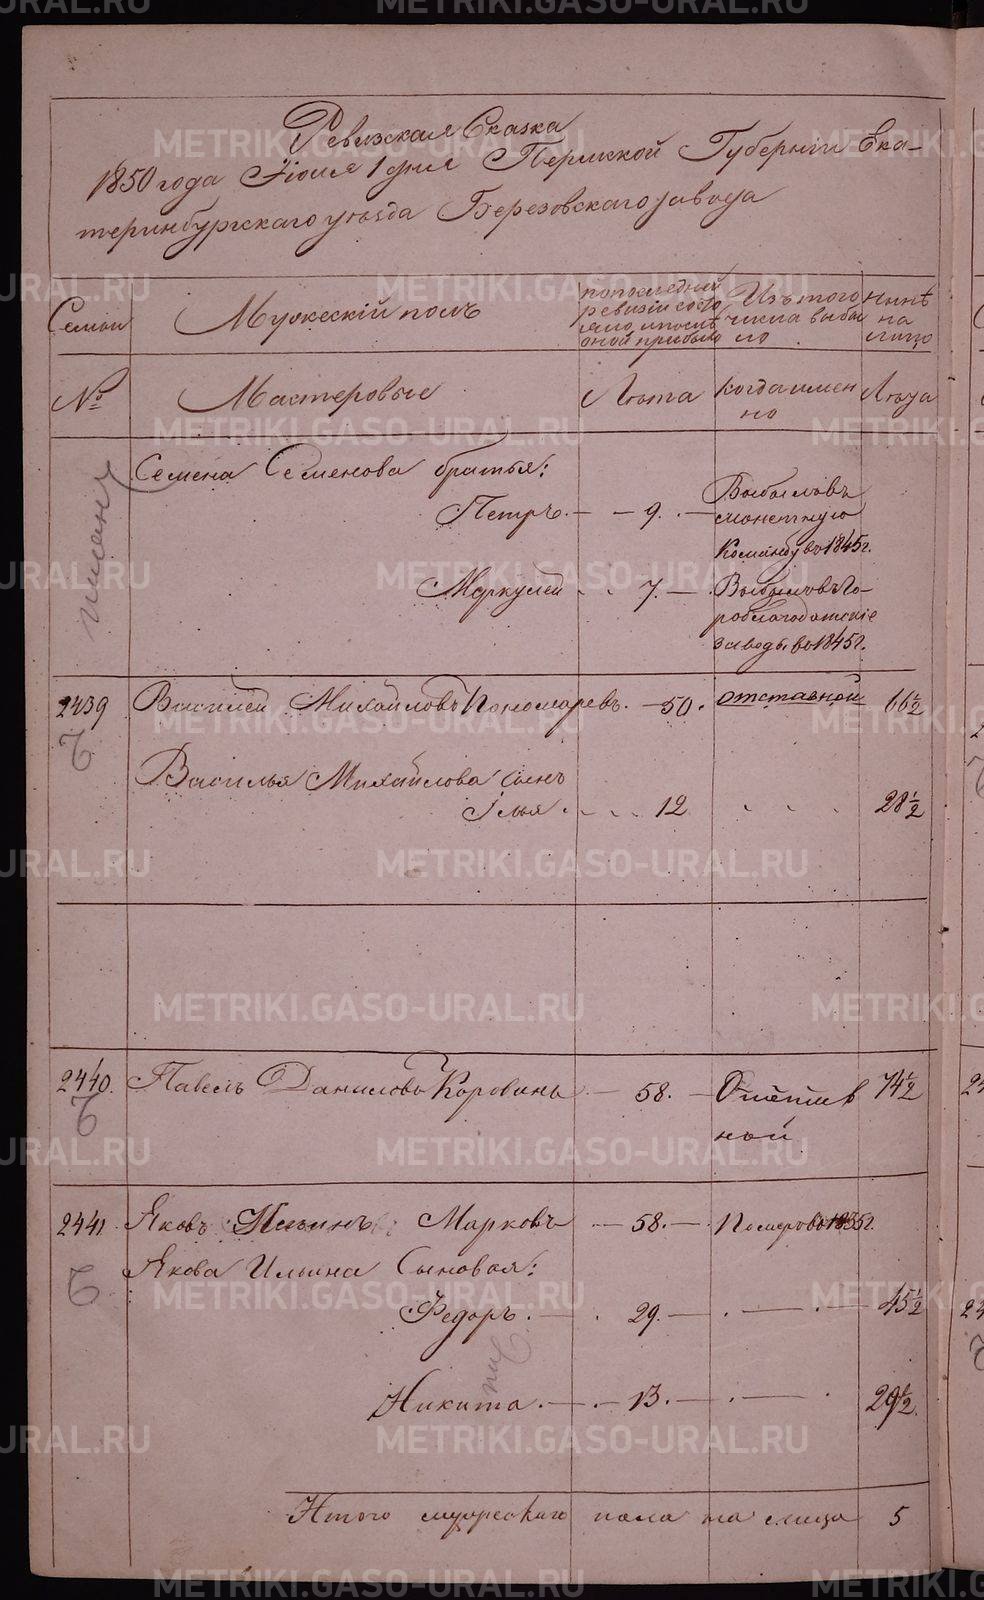 Ревизская Сказка
1850 года Июня 1 дня Пермской Губернiи Ека-
теринбургскаго уѣзда Березовскаго завода
Семьи
Мужескiй полъ
по последней ревизiи состояло, и после оной прибыло
Изъ того числа выбыло
нынѣ на лицо
№
Мастеровые
Лѣта
когда именно
Лѣта
Семена Семенова братья:
Петръ. — — 9. — Выбылъ въ
монетную
Команду въ 1845 г.
Меркулей . . 7. — Выбылъ въ Го-
роблагодатскiе
заводы въ 1845 г.
2439 Василей Михайловъ Пономаревъ. — 50. отставной 66½
Василья Михайлова сынъ
Илья . . . . 12 . . . 28½
2440. Павелъ Даниловъ Коровинъ — 58. — Отстав
ной 74½
2441 Яковъ Ильинъ Марковъ — 58. — Померъ въ 1835 г.
Якова Ильина Сыновья:
Федоръ. — . 29. — . — . — 45½
Никита. — . — 13. — . — . 29½.
Итого мужескаго пола на лицо 5
METRIKI.GASO-URAL.RU